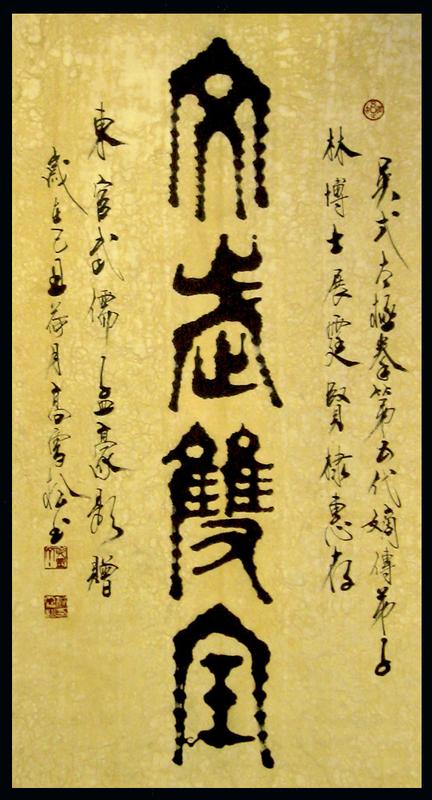 吳式太極拳第五代嫡傳弟子
林博士展霆賢棣惠存
文武雙全
東宮武儒孟豪 贈
歲在己丑荷月高雪松書